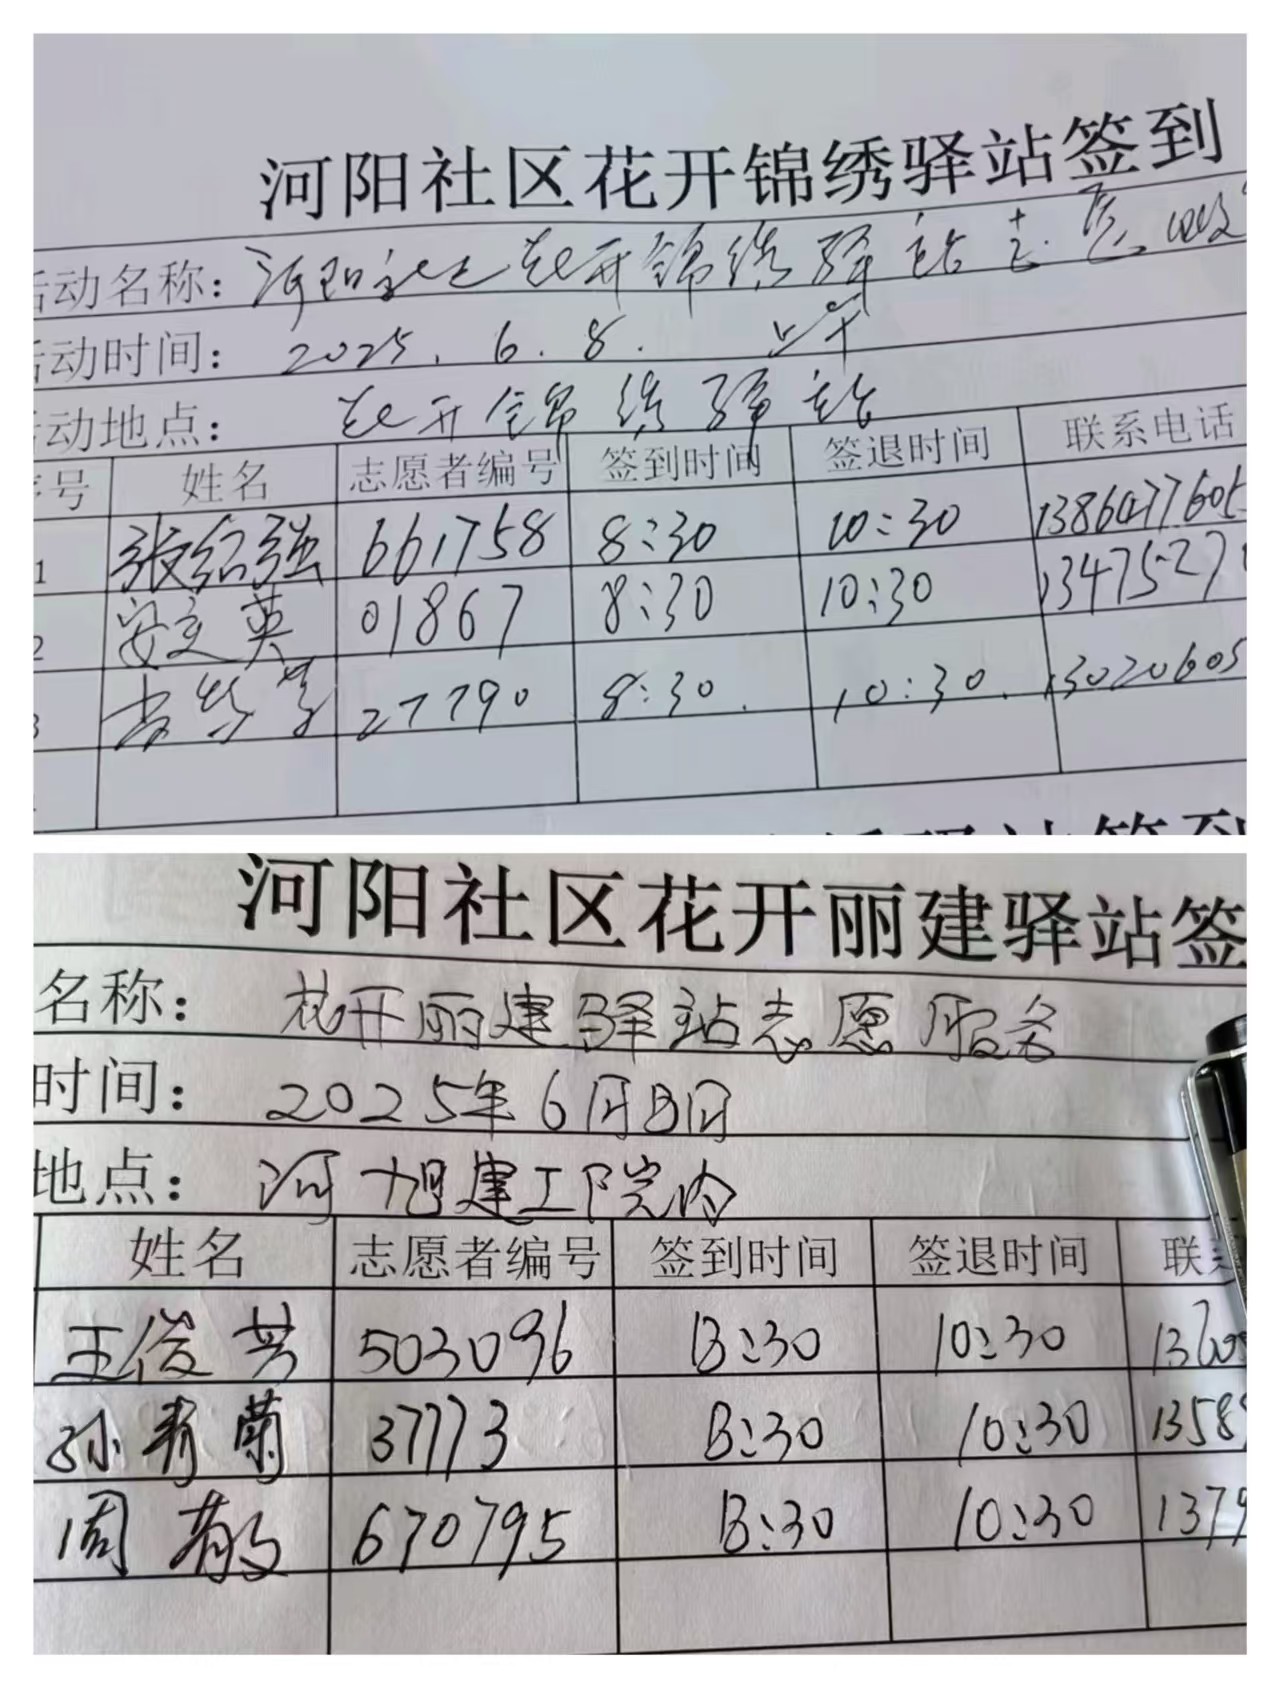 河阳社区花开锦绣驿站签到
活动名称：河阳社区花开锦绣驿站志愿服
活动时间：2025.6.8. 上午
活动地点：花开锦绣驿站
号 姓名 志愿者编号 签到时间 签退时间 联系电话
1 张绍强 661758 8:30 10:30 1386477605
2 安文英 01867 8:30 10:30 13475271
3 27790 8:30. 10:30. 13020605
河阳社区花开丽建驿站签
名称：花开丽建驿站志愿服务
时间：2025年6月8日
地点：河旭建工院内
姓名 志愿者编号 签到时间 签退时间 联系
王俊芳 503096 8:30 10:30 13608
孙青菊 37773 8:30 10:30 1358
周 670795 8:30 10:30 1379